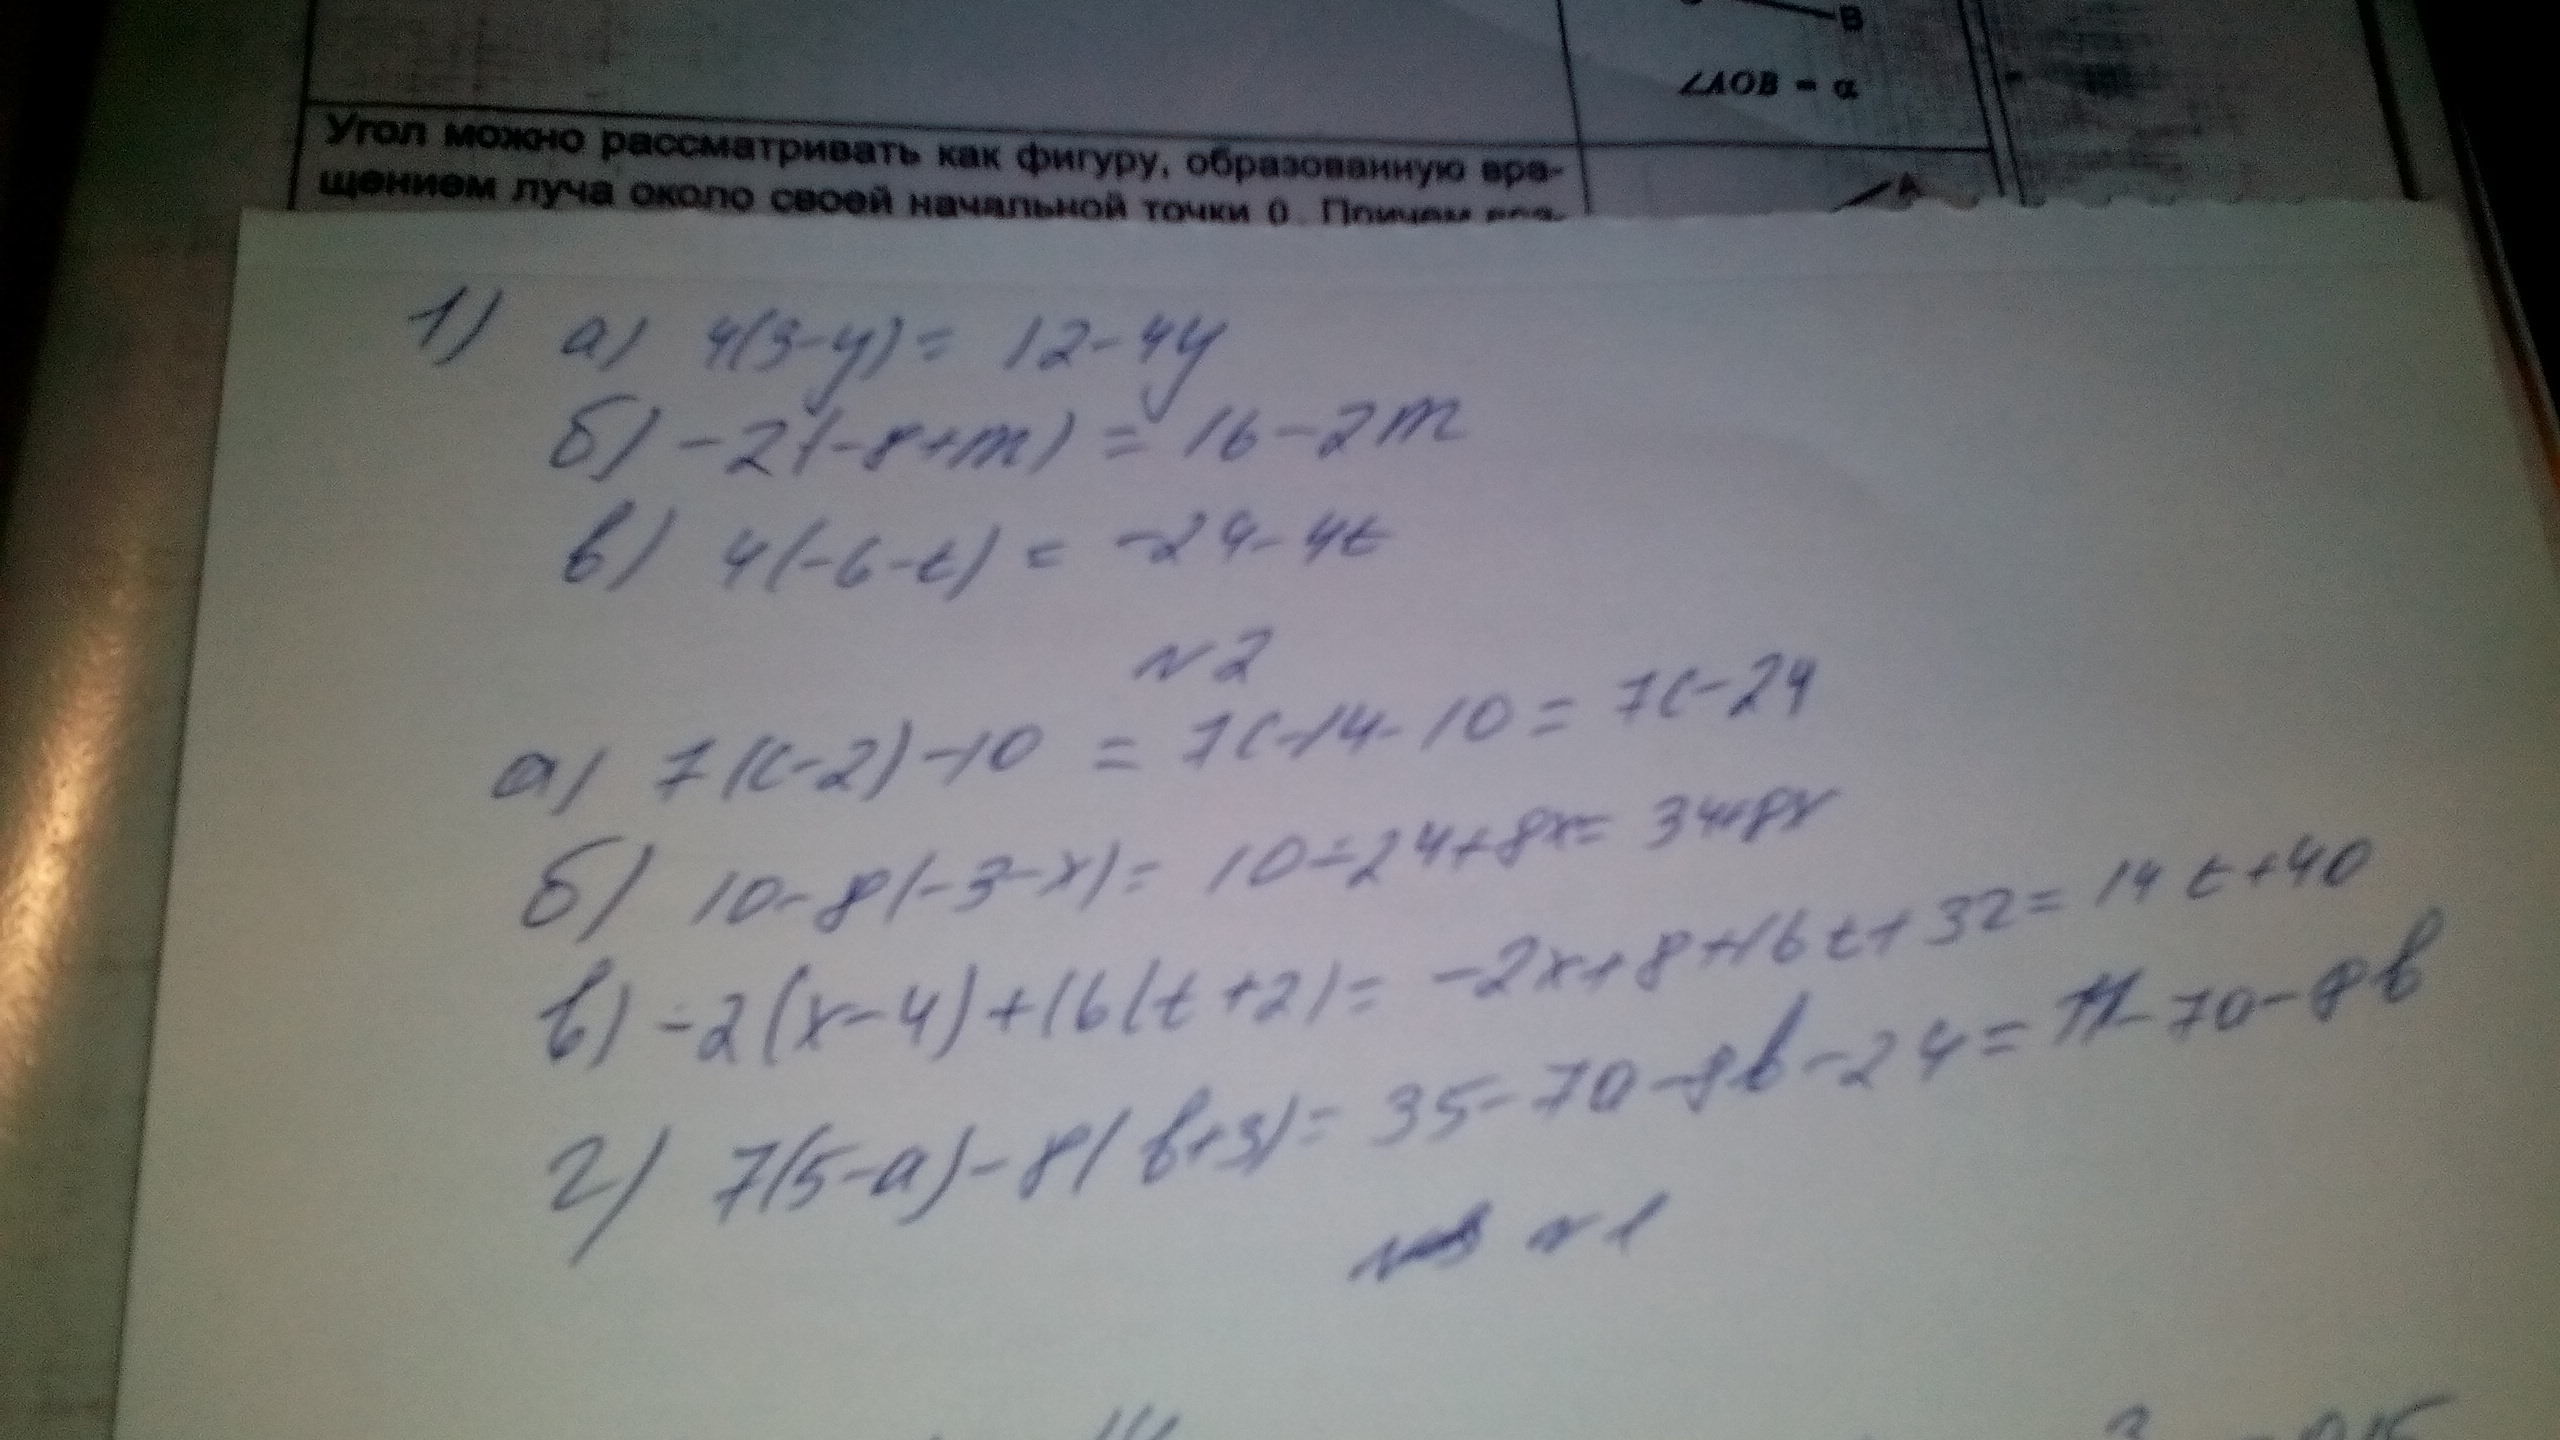 B
∠AOB = α
Угол можно рассматривать как фигуру, образованную вра-
щением луча около своей начальной точки 0. Причем вра-
A
1) а) 4(3-y) = 12-4y
б) -2(-8+m) = 16-2m
в) 4(-6-t) = -24-4t
N2
а) 7(c-2)-10 = 7c-14-10 = 7c-24
б) 10-8(-3-x) = 10+24+8x = 34+8x
в) -2(x-4)+16(t+2) = -2x+8+16t+32 = 14t+40
г) 7(5-a)-8(b+3) = 35-7a-8b-24 = 11-7a-8b
N1